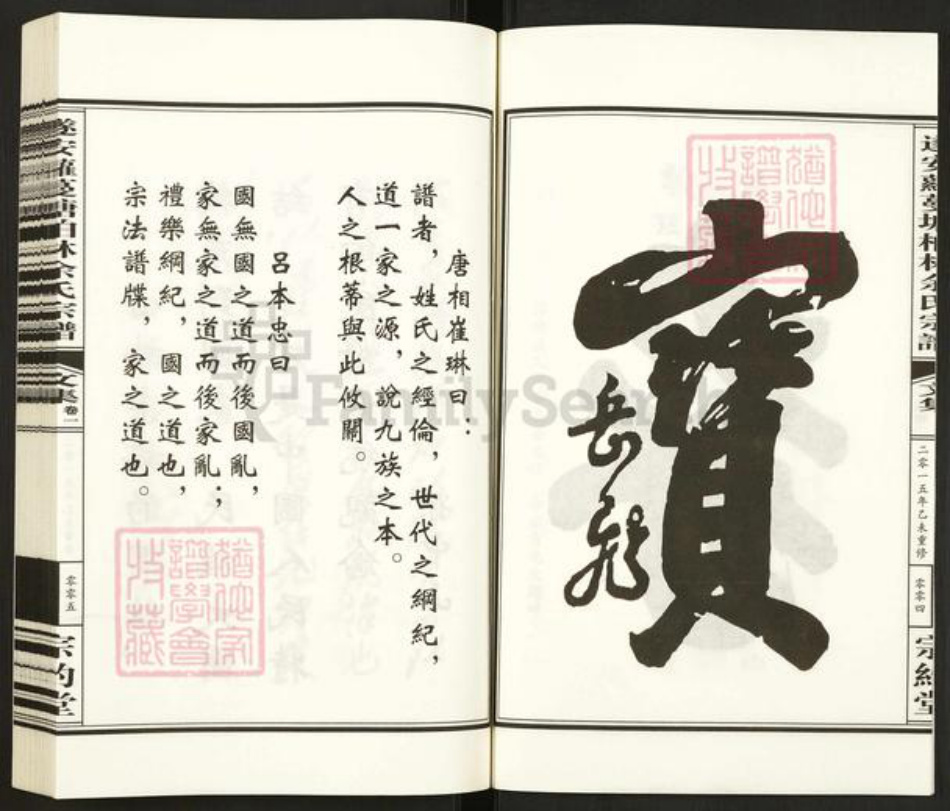 寶
岳飛
二零一五年乙未重修
零零四
唐相崔琳曰：
譜者，姓氏之經倫，世代之綱紀，
道一家之源，說九族之本。
人之根蒂與此攸關。
呂本忠曰
國無國之道而後國亂，
家無家之道而後家亂；
禮樂綱紀，國之道也，
宗法譜牒，家之道也。
遂安蘿蔓塘柏林余氏宗譜
文集
卷一
零零五
猶他家譜學會收藏
FamilySearch